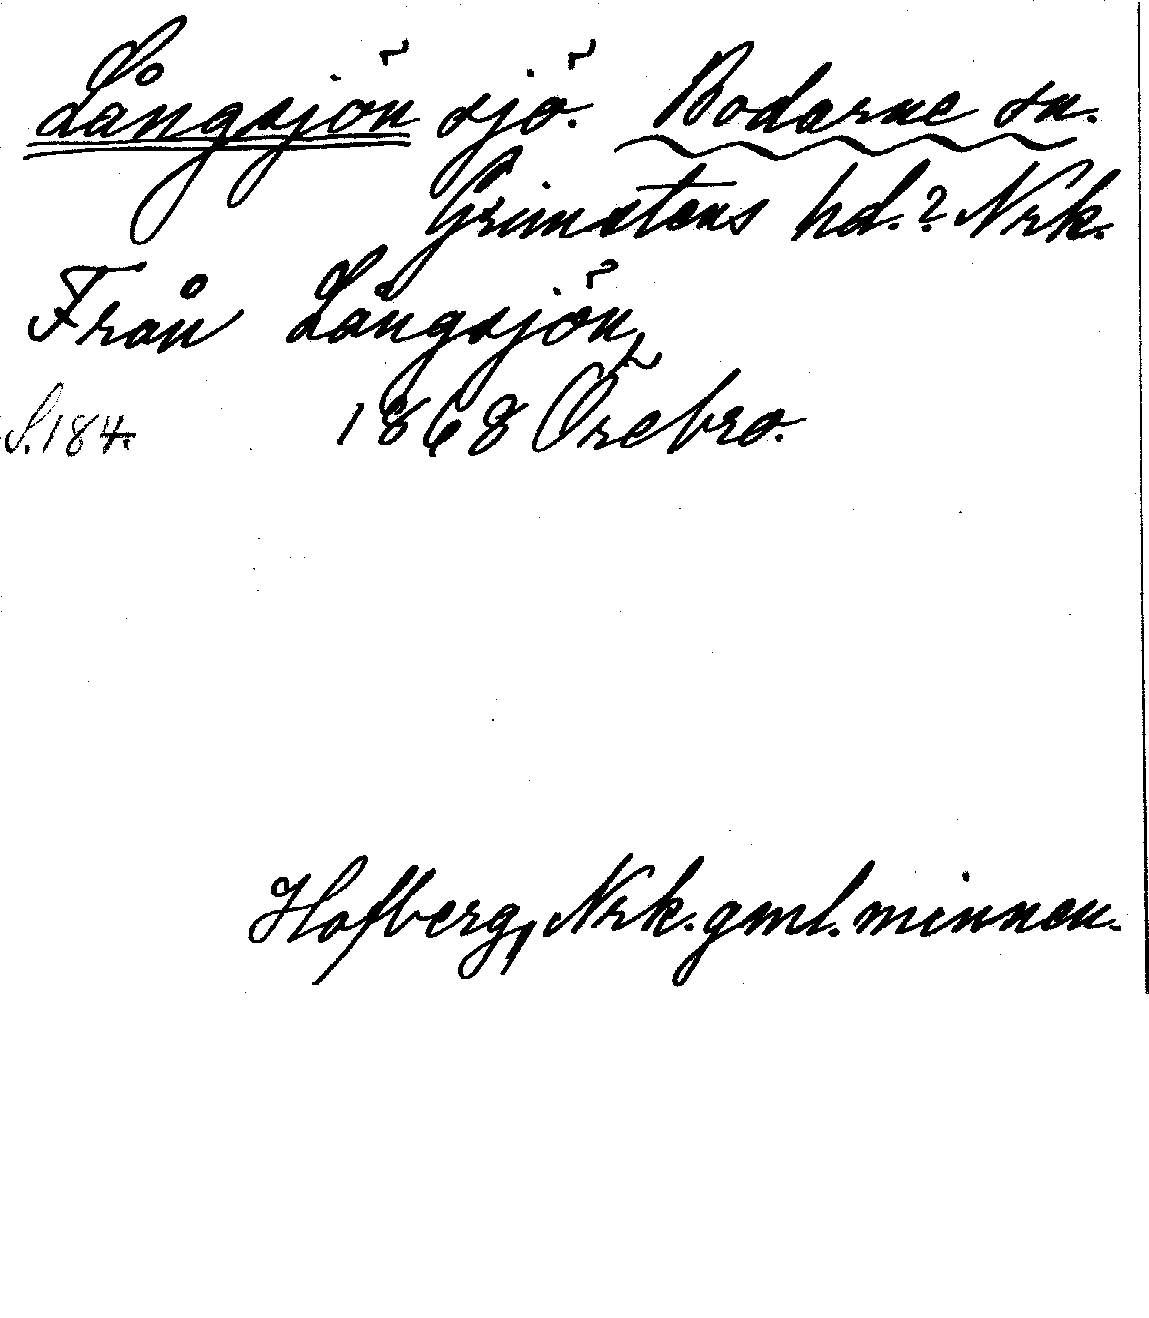 Långsjön sjö. Bodarne sn.
Grimstens hd.? Nrk.
Från Långsjön,
S. 184. 1868 Örebro.
Hofberg, Nrk. gml. minnen.